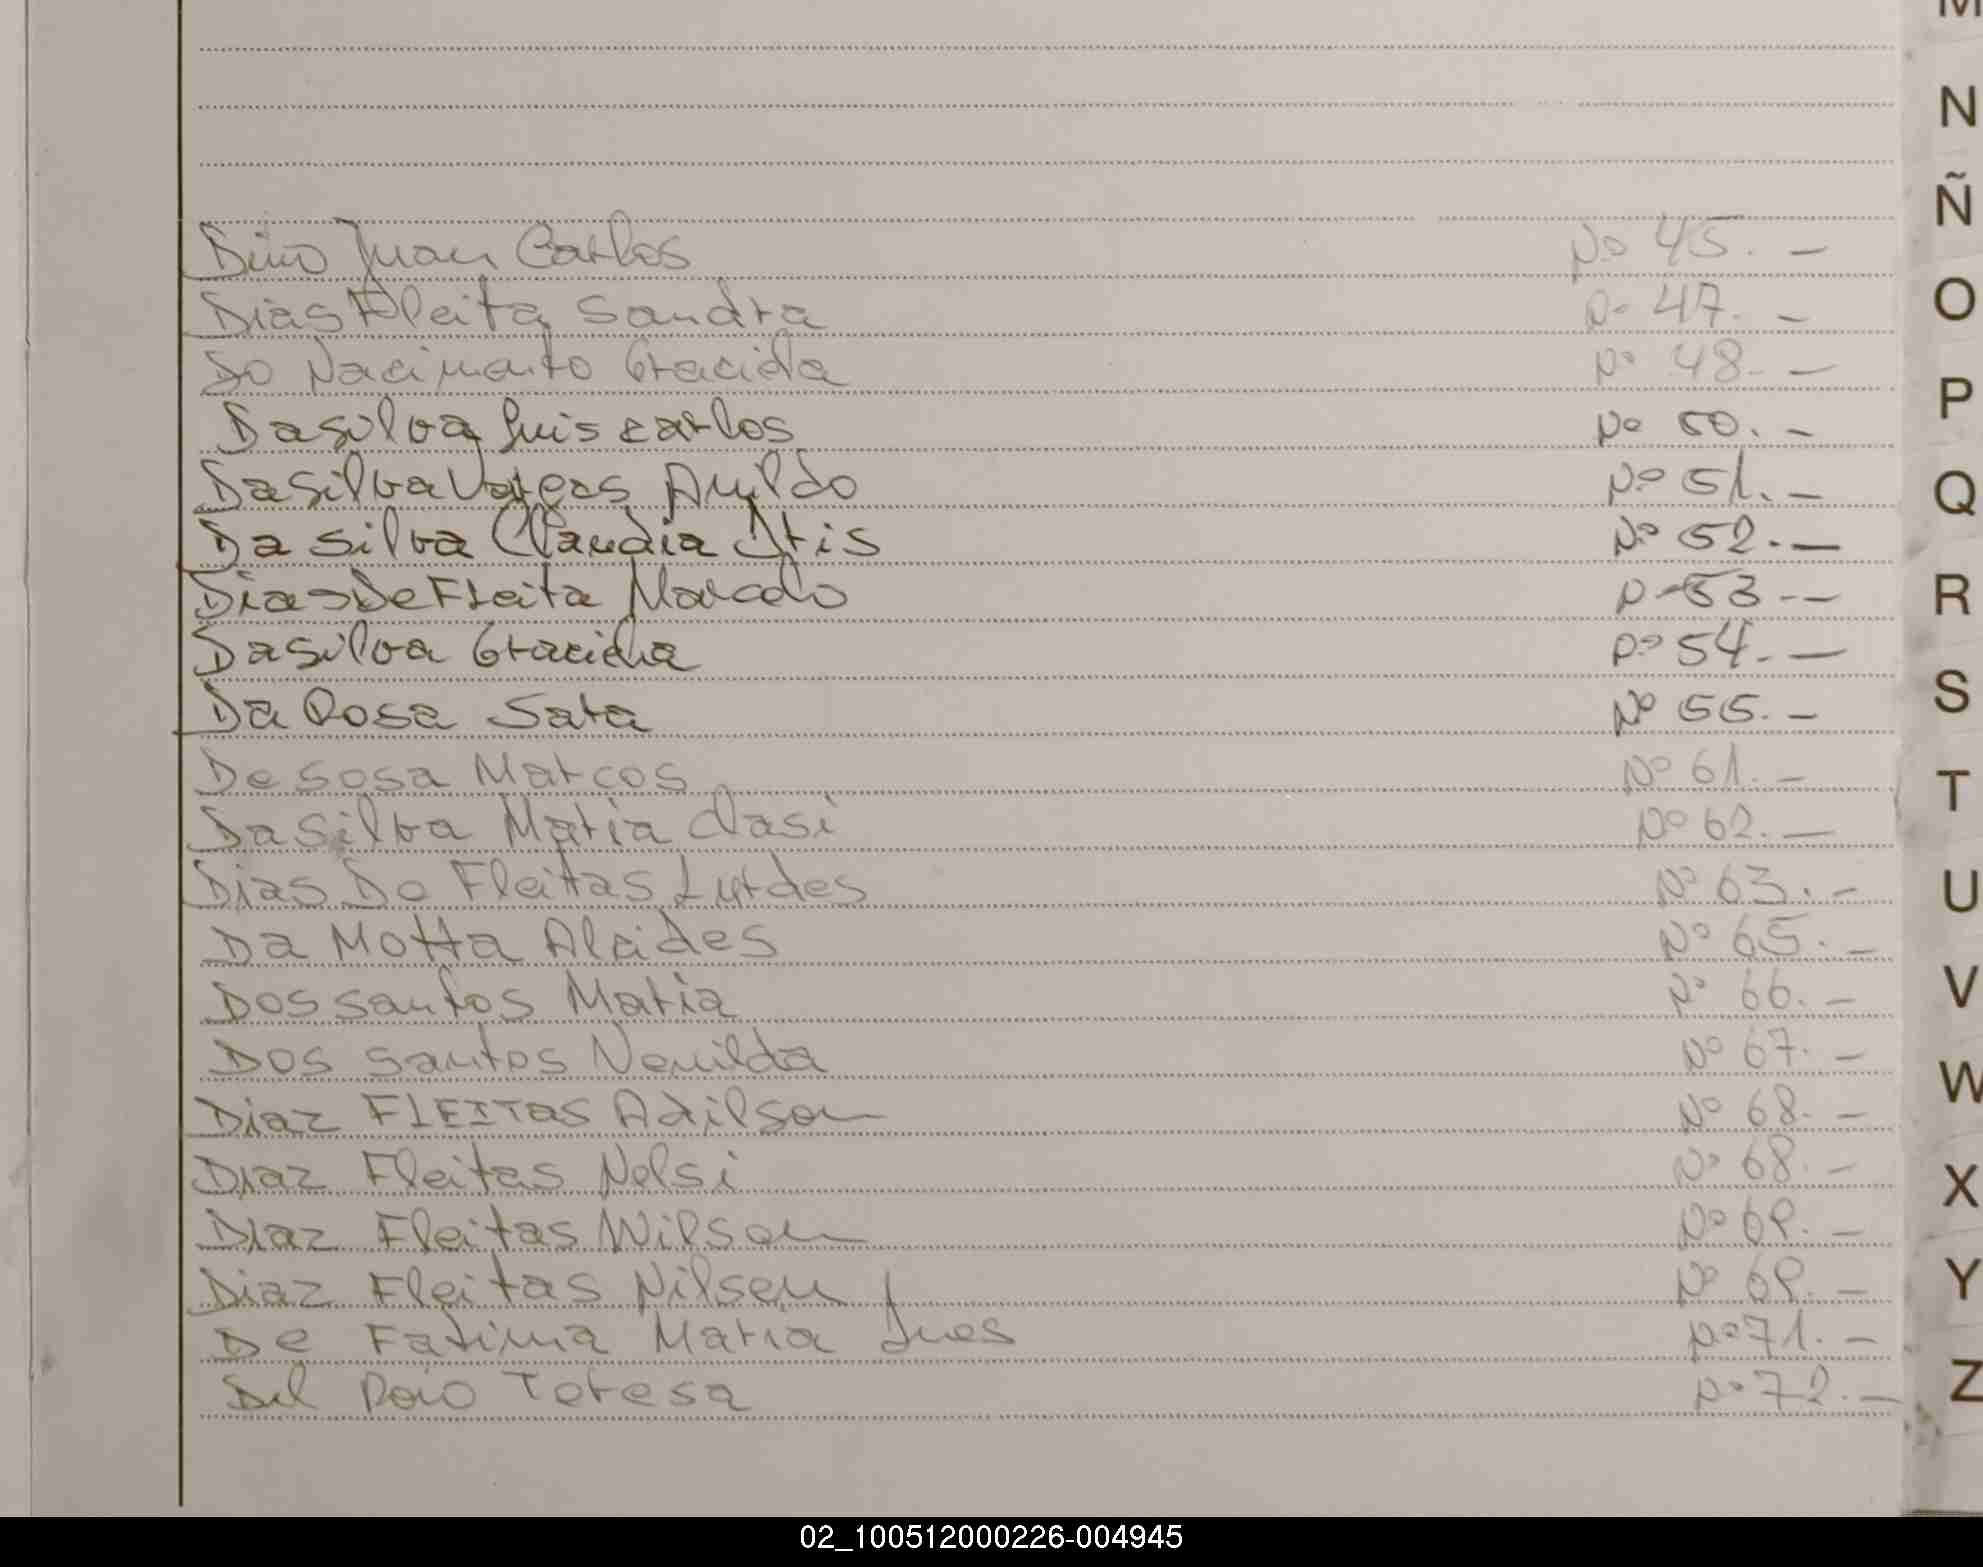 M
N
Ñ
O
P
Q
R
S
T
U
V
W
X
Y
Z
Juan Carlos Nº 45.-
Dias Fleita Sandra Nº 47.-
Do Nacimento Graciela Nº 48.-
Dasilva Luis carlos Nº 50.-
Dasilva Vargas Nº 51.-
Da silva Claudia Iris Nº 52.-
Dias De Fleita Marcelo Nº 53.-
Dasilva Graciela Nº 54.-
Da Rosa Sara Nº 55.-
De Sosa Marcos Nº 61.-
Dasilva Maria Nº 62.-
Dias De Fleitas Lurdes Nº 63.-
Da Motta Alcides Nº 65.-
Dos santos Maria Nº 66.-
Dos santos Nenilda Nº 67.-
Diaz FLEITas Adilson Nº 68.-
Diaz Fleitas Nelsi Nº 68.-
Diaz Fleitas Wilson Nº 69.-
Diaz Fleitas Nilsen Nº 69.-
De Fatima Maria Ines Nº 71.-
Del Teresa Nº 72.-
02_100512000226-004945